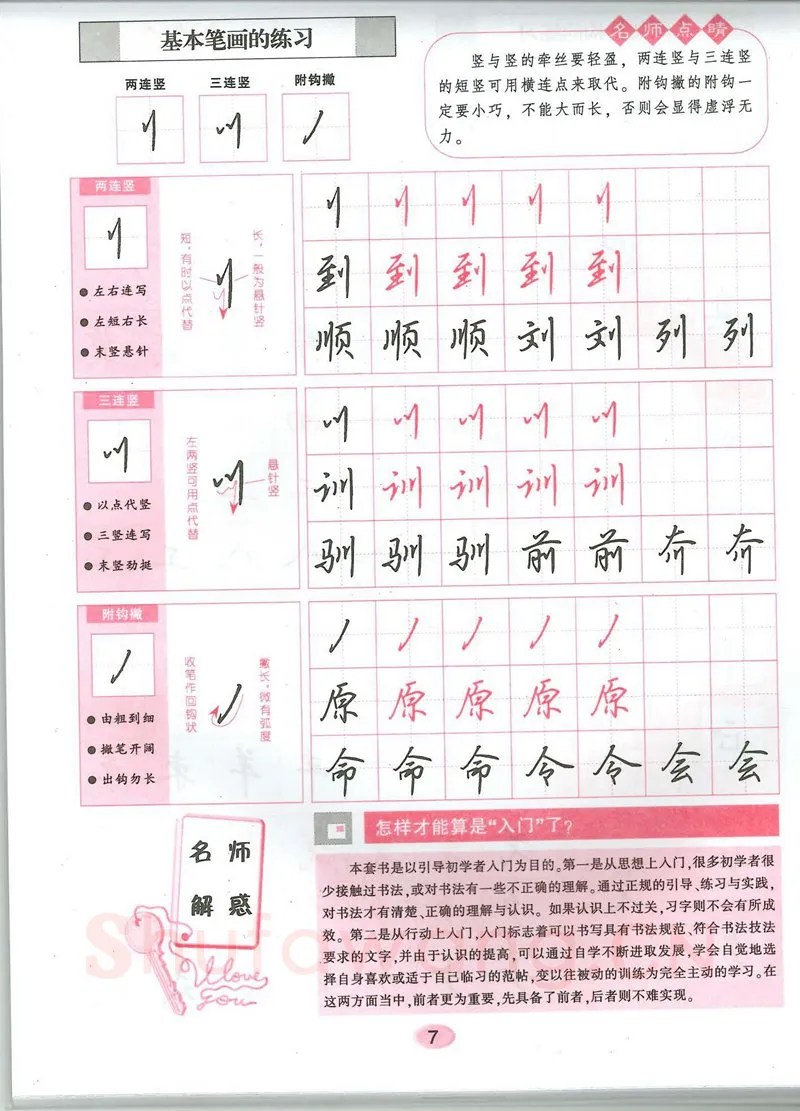 基本笔画的练习
名师点睛
竖与竖的牵丝要轻盈，两连竖与三连竖
的短竖可用横连点来取代。附钩撇的附钩一
定要小巧，不能大而长，否则会显得虚浮无
力。
两连竖 三连竖 附钩撇
两连竖
左右连写
左短右长
末竖悬针
短，有时以点代替
长，一般为悬针竖
到 到 到 到 到
顺 顺 顺 刘 刘 列 列
三连竖
以点代竖
三竖连写
末竖劲挺
左两竖可用点代替
悬针竖
训 训 训 训 训
驯 驯 驯 前 前 夼 夼
附钩撇
由粗到细
撇笔开阔
出钩勿长
收笔作回钩状
撇长，微有弧度
原 原 原 原 原
命 命 命 令 令 会 会
名师
解惑
I love
you
怎样才能算是“入门”了？
本套书是以引导初学者入门为目的。第一是从思想上入门，很多初学者很
少接触过书法，或对书法有一些不正确的理解。通过正规的引导、练习与实践，
对书法才有清楚、正确的理解与认识。如果认识上不过关，习字则不会有所成
效。第二是从行动上入门，入门标志着可以书写具有书法规范、符合书法技法
要求的文字，并由于认识的提高，可以通过自学不断进取发展，学会自觉地选
择自身喜欢或适于自己临习的范帖，变以往被动的训练为完全主动的学习。在
这两方面当中，前者更为重要，先具备了前者，后者则不难实现。
7